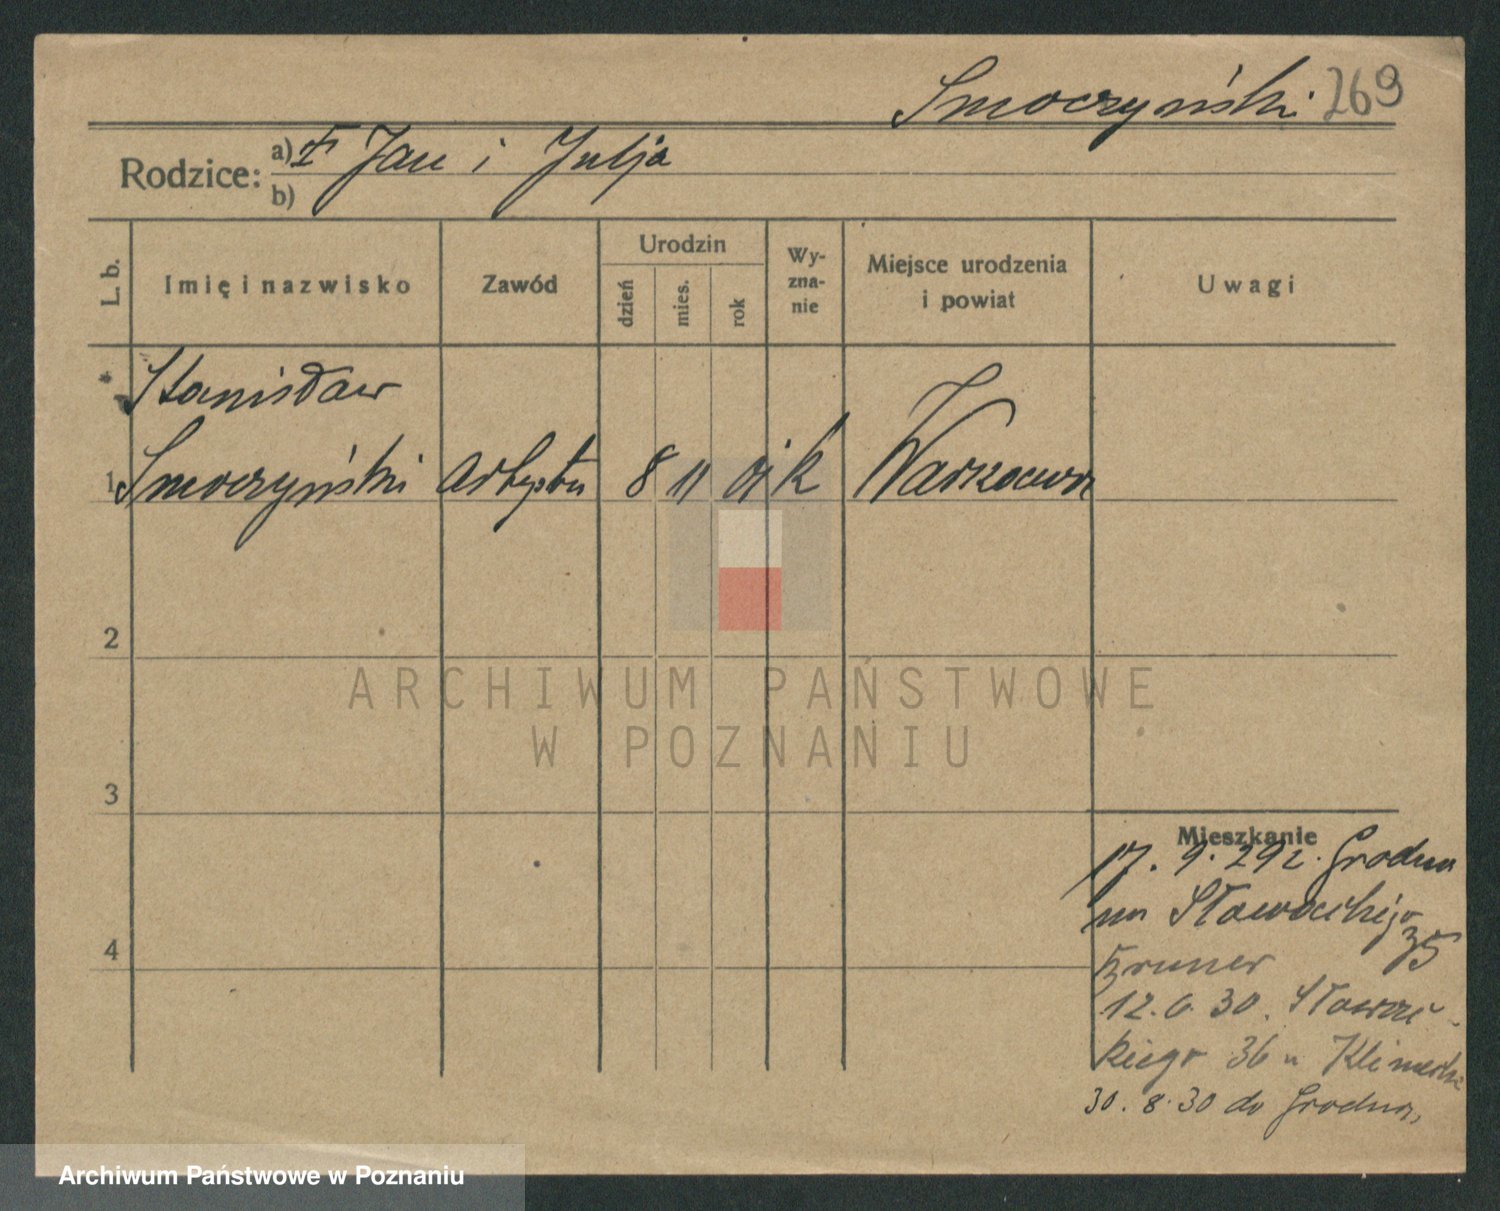 Smoczyński 269
Rodzice: a) Jan i Julja
b)
L. b. Imię i nazwisko Zawód Urodzin dzień mies. rok Wy-zna-nie Miejsce urodzenia i powiat Uwagi
Stanisław
1 Smoczyński Artysta 8 11 01 k Warszawa
2
ARCHIWUM PAŃSTWOWE
W POZNANIU
3
Mieszkanie
17. 9. 29 z Grodna
na Słowackiego
35
12. 6. 30. Słowac-
kiego 36 u
30. 8. 30 do Grodna,
4
Archiwum Państwowe w Poznaniu